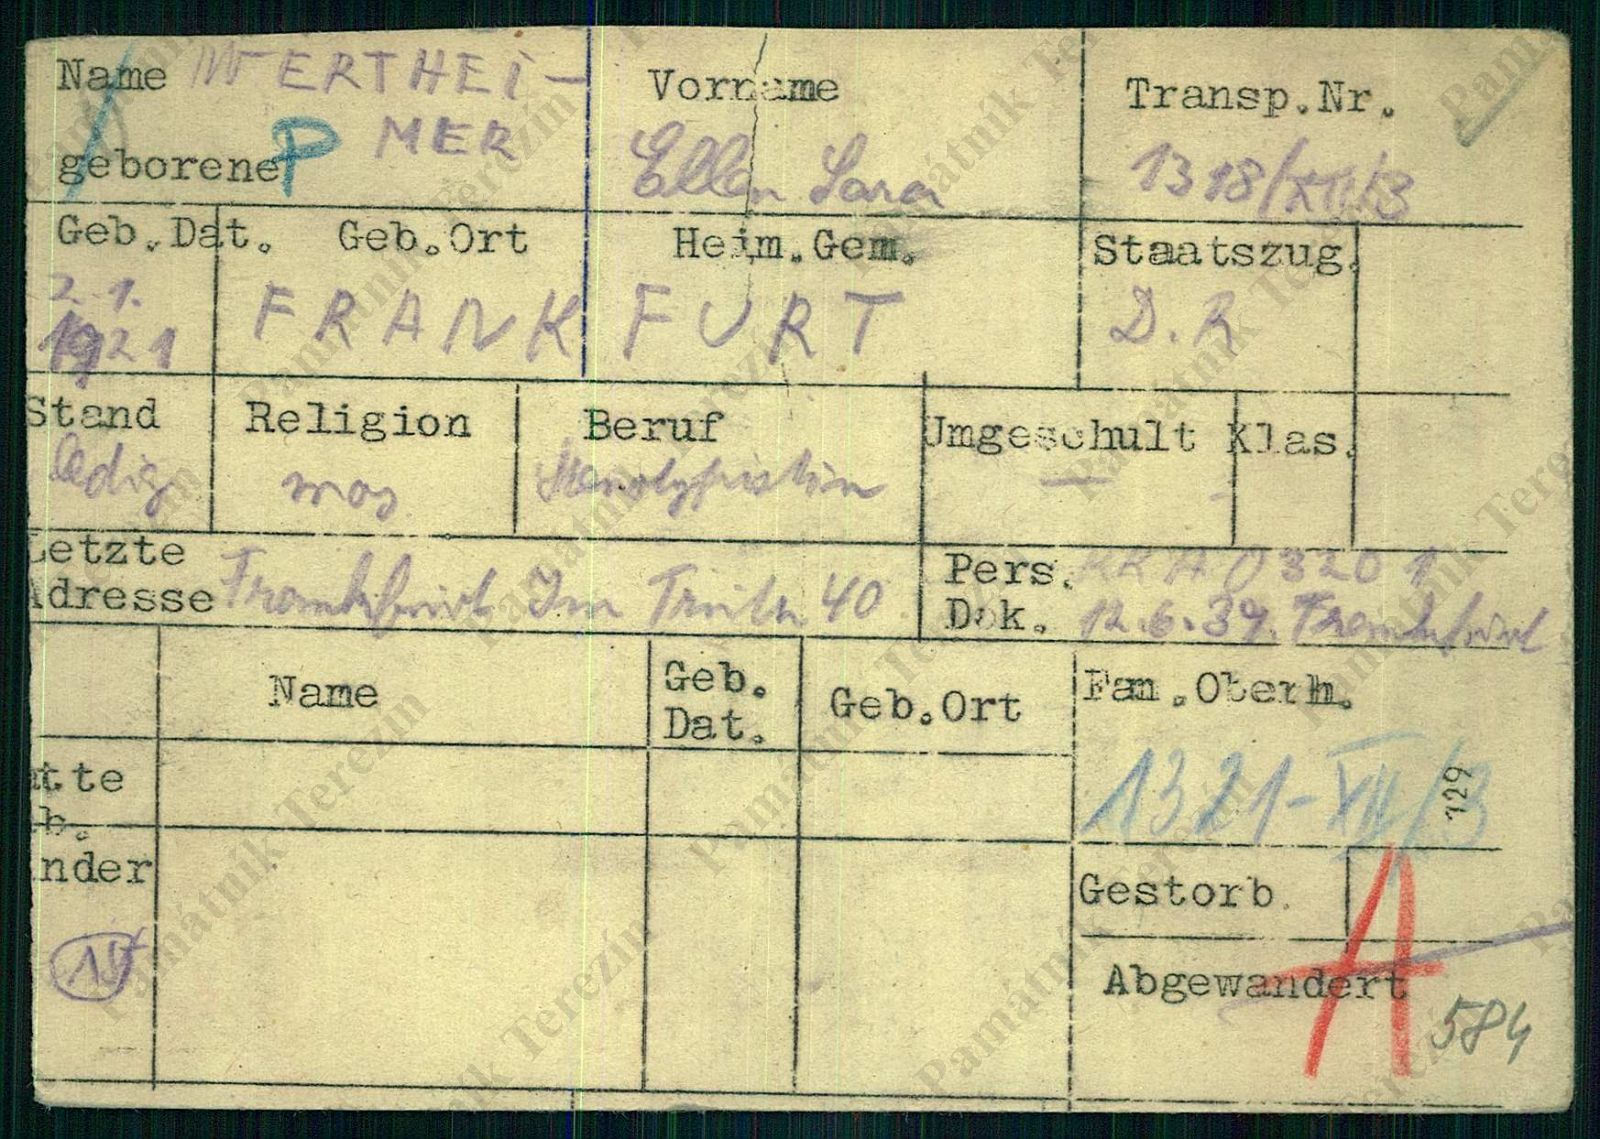 Name WERTHEI-
geborene P MER
Vorname
Ellen Sara
Transp.Nr.
1318/XII/3
Geb.Dat.
2.1.
1921
Geb.Ort Heim.Gem.
FRANKFURT
Staatszug.
D.R
Stand
ledig
Religion
mos.
Beruf
Stenotypistin
Umgeschult
—
Klas.
Letzte
Adresse Frankfurt Im Trutz 40
Pers. RKA 03201
Dok. 12.6.39. Frankfurt
Name
Geb.
Dat.
Geb.Ort
Fam.Oberh.
1321-XII/3
129
tte
b.
nder
Gestorb.
Abgewandert
A
584
Památník Terezín